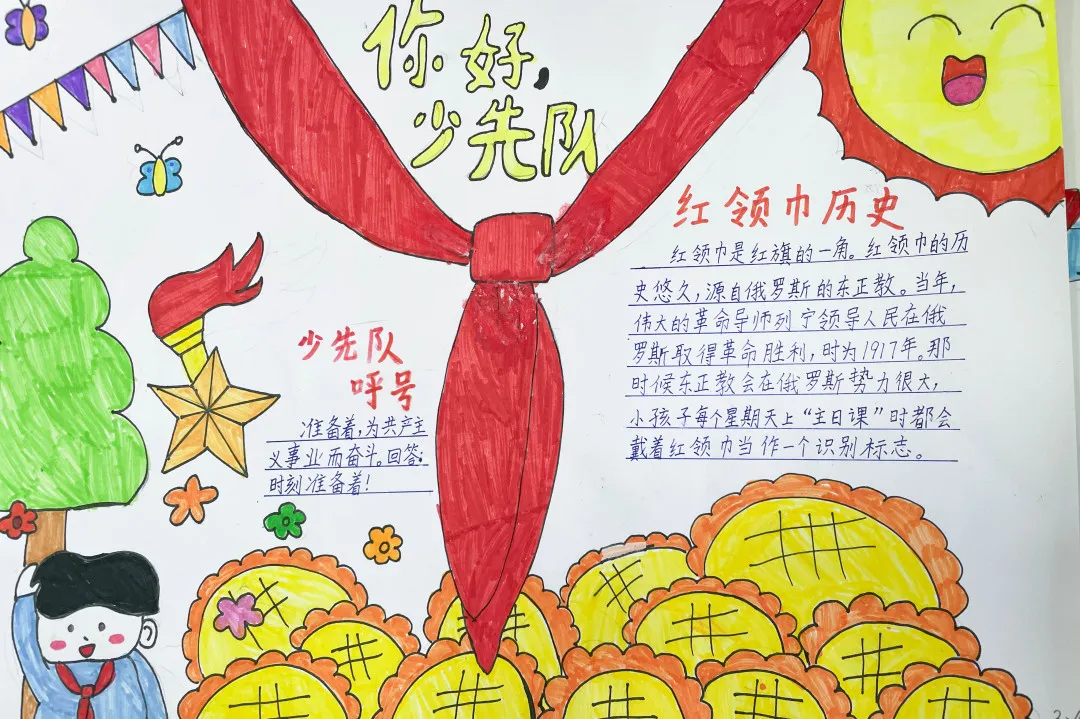 你好,
少先队
红领巾历史
红领巾是红旗的一角。红领巾的历
史悠久,源自俄罗斯的东正教。当年,
伟大的革命导师列宁领导人民在俄
罗斯取得革命胜利,时为1917年。那
时候东正教会在俄罗斯势力很大,
小孩子每个星期天上“主日课”时都会
戴着红领巾当作一个识别标志。
少先队
呼号
准备着,为共产主
义事业而奋斗。回答:
时刻准备着!